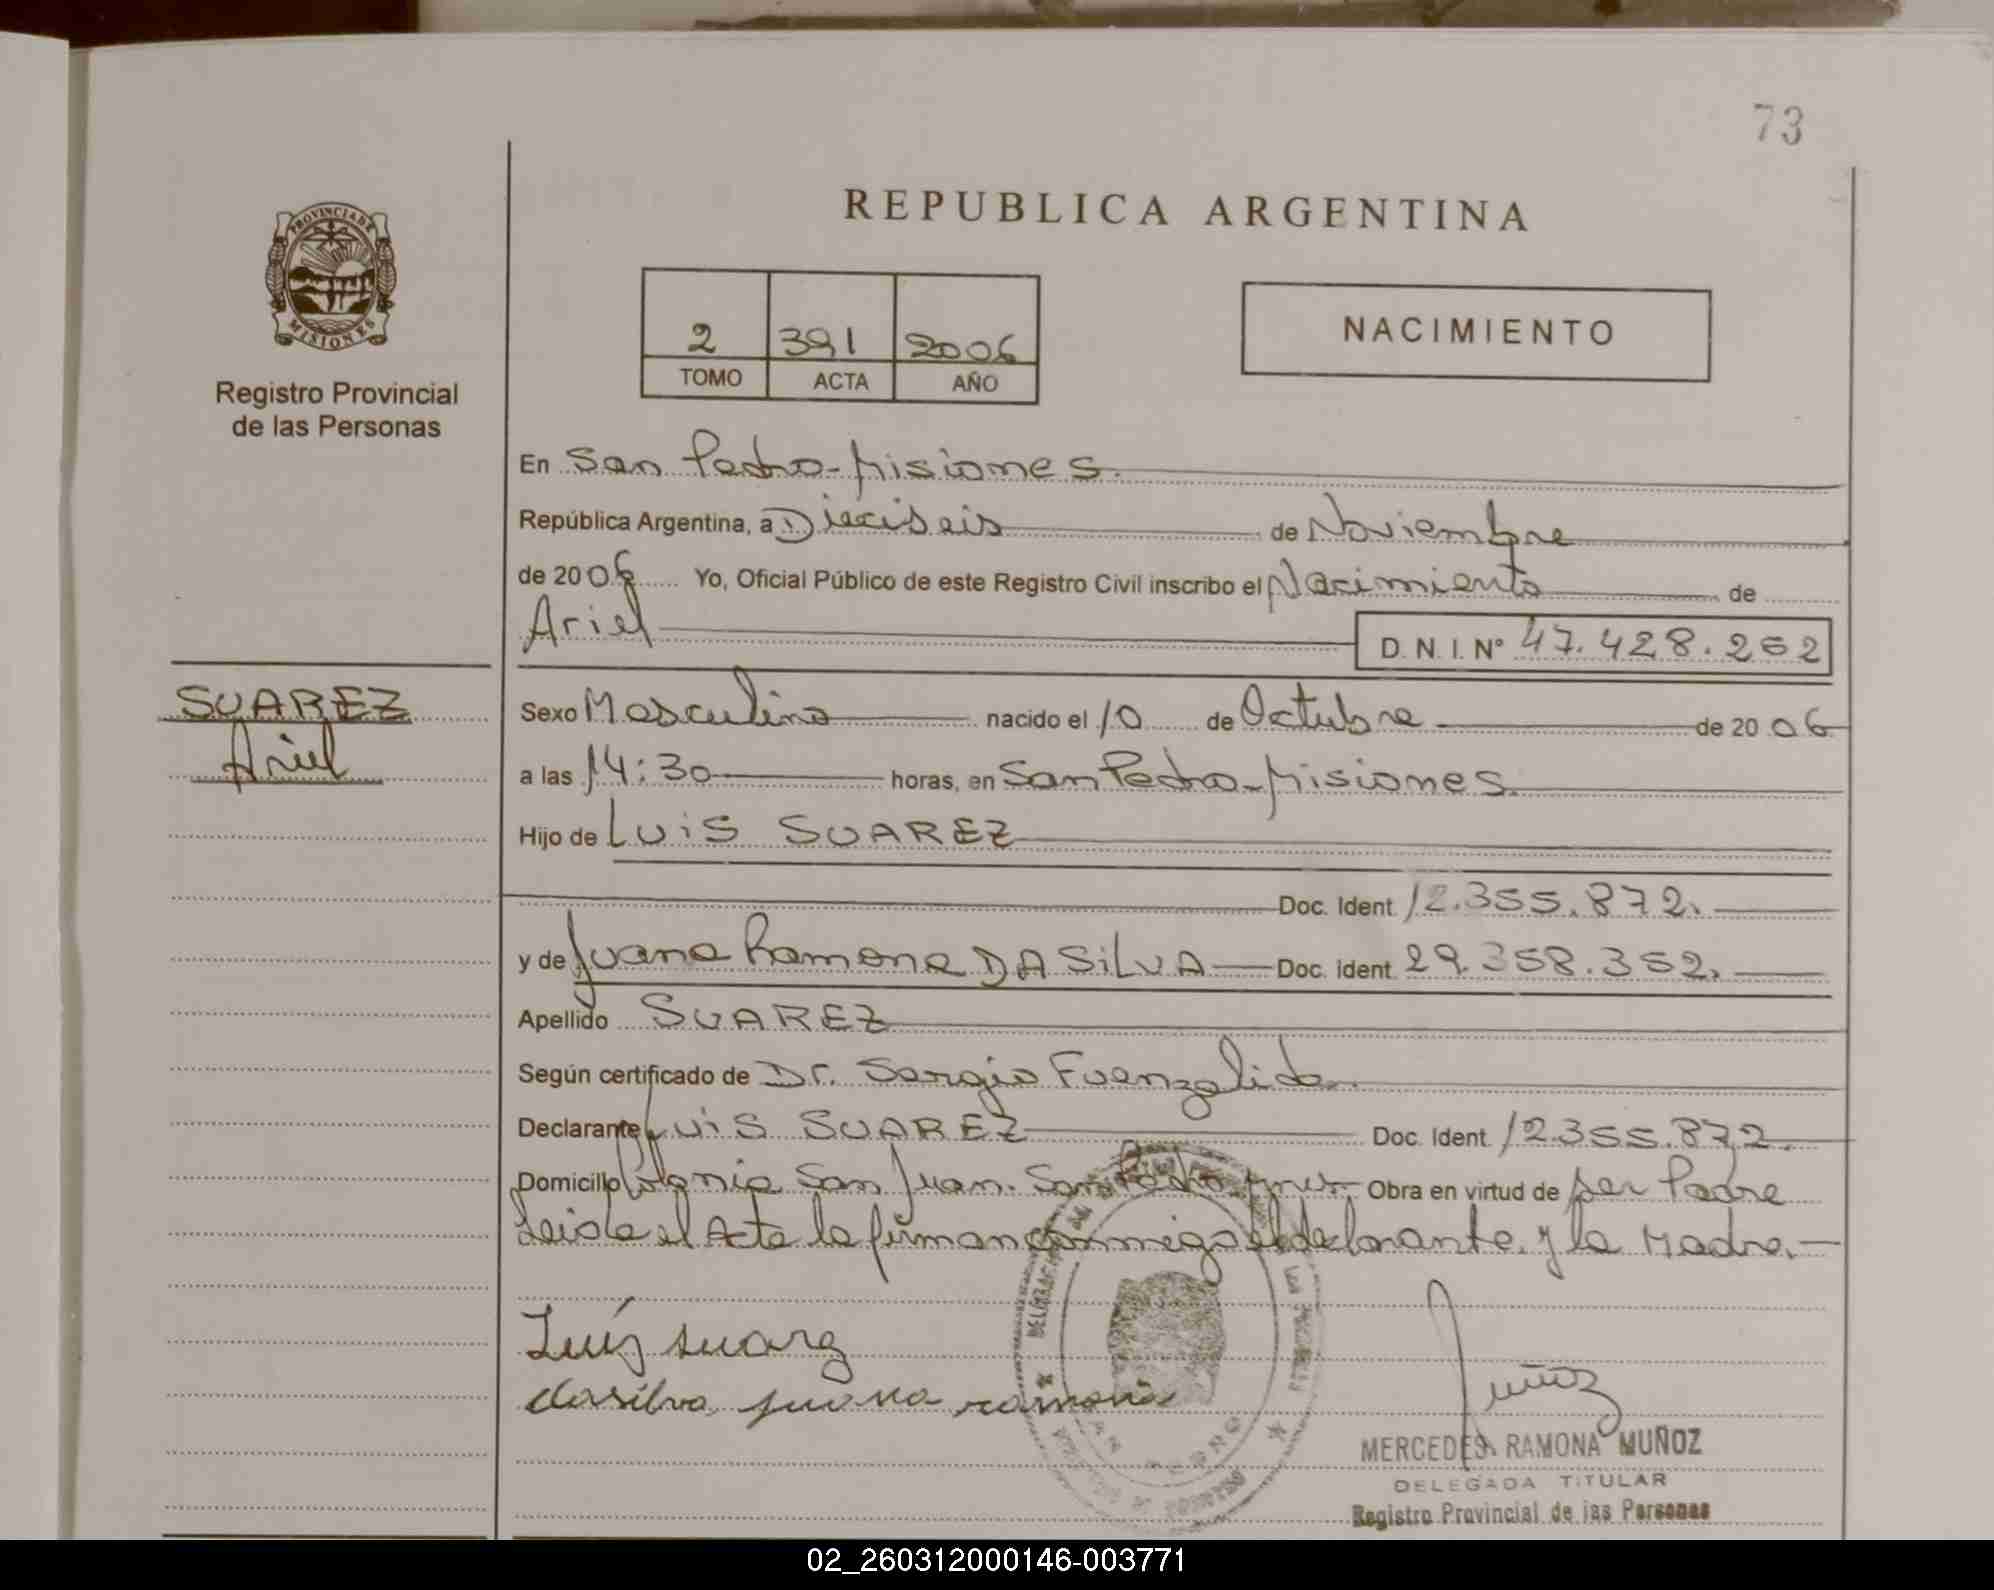 73
PROVINCIA DE
MISIONES
Registro Provincial
de las Personas
REPUBLICA ARGENTINA
2 391 2006
TOMO ACTA AÑO
NACIMIENTO
En San Pedro-Misiones.
República Argentina, a Dieciseis de Noviembre
de 2006 Yo, Oficial Público de este Registro Civil inscribo el Nacimiento de
Ariel D. N. I. Nº 47.428.262
SUAREZ
Ariel
Sexo Masculino nacido el 10 de Octubre de 2006
a las 14:30 horas, en San Pedro-Misiones.
Hijo de Luis SUAREZ
Doc. Ident. 12.355.872.
y de Juana Ramona DA SiLVA Doc. Ident. 29.358.352.
Apellido SUAREZ
Según certificado de Dr. Sergio Fuenzalida.
Declarante Luis SUAREZ Doc. Ident. 12.355.872.
Domicilio Colonia San Juan. San Pedro Mnes. Obra en virtud de ser Padre
Leida el Acta la firman conmigo el declarante y la Madre.
Luiz suarez
dasilva juana ramona
MERCEDES RAMONA MUÑOZ
DELEGADA TITULAR
Registro Provincial de las Personas
02_260312000146-003771